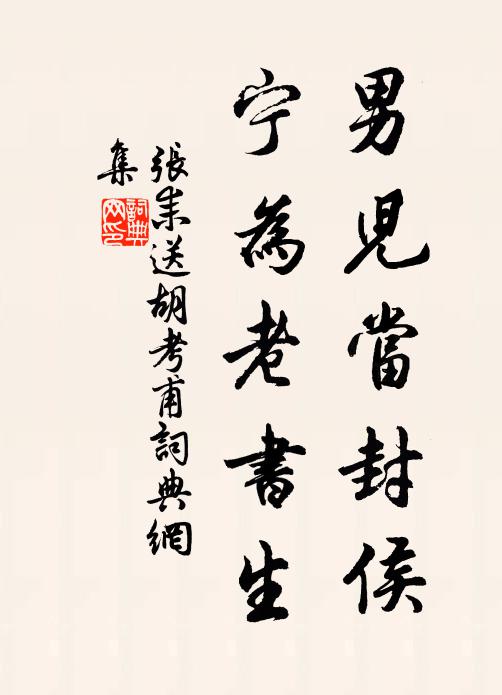 男児當封侯
宁為老書生
張耒送胡考甫詞典網
集
詞典網印